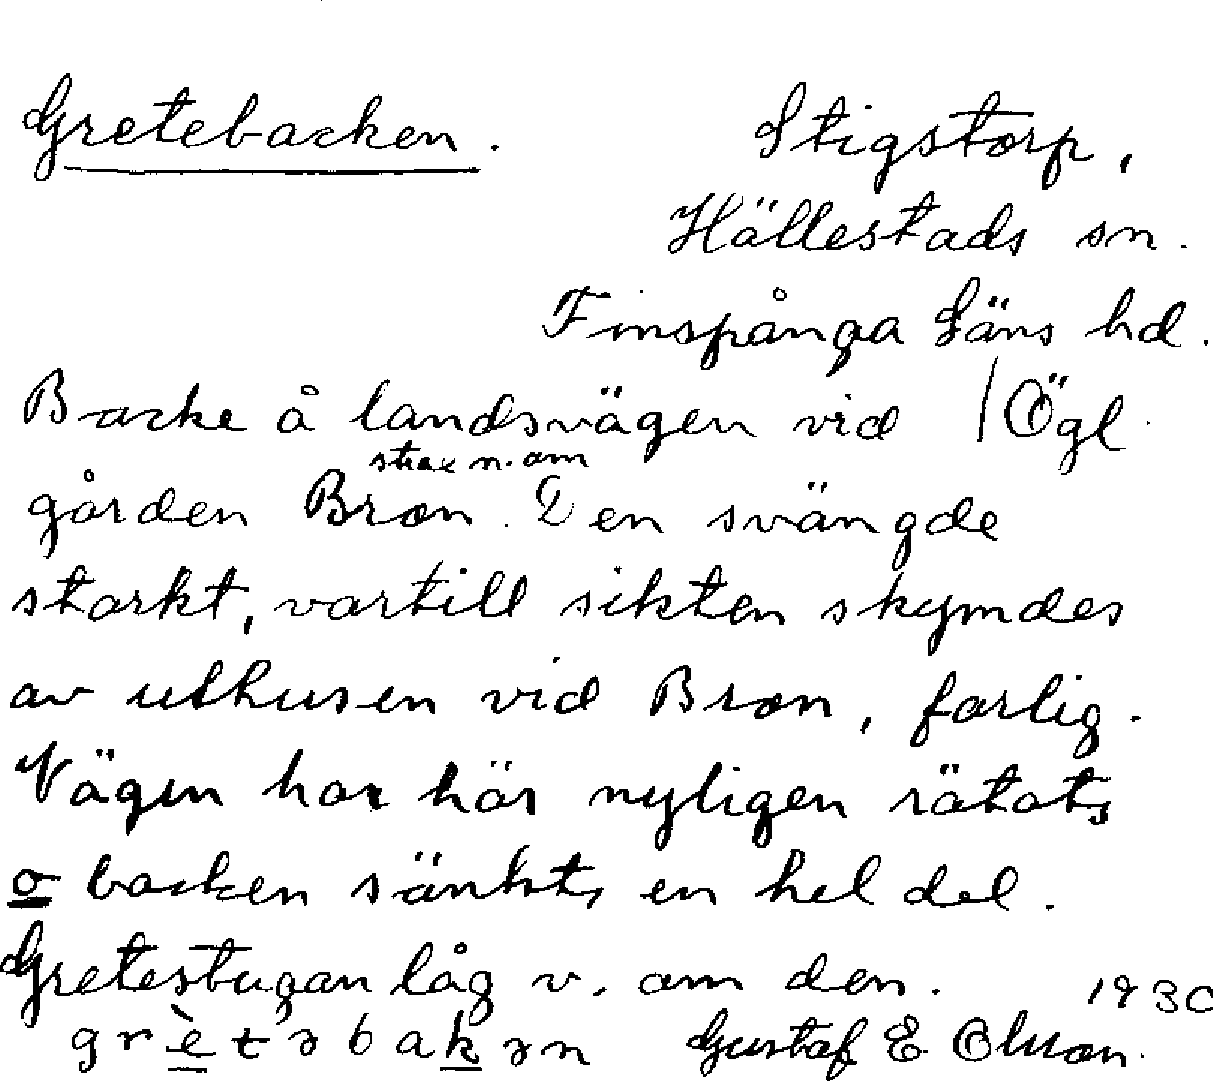 Gretebacken. Stigstorp,
Hällestads sn.
Finspånga Läns hd.
Backe å landsvägen vid /Ögl.
strax n. om
gården Bron. Den svängde
starkt, vartill sikten skymdes
av uthusen vid Bron, farlig.
Vägen har här nyligen rätats
o backen sänkts en hel del.
Gretestugan låg v. om den. 1930
grètəbakən Gustaf E Olsson.